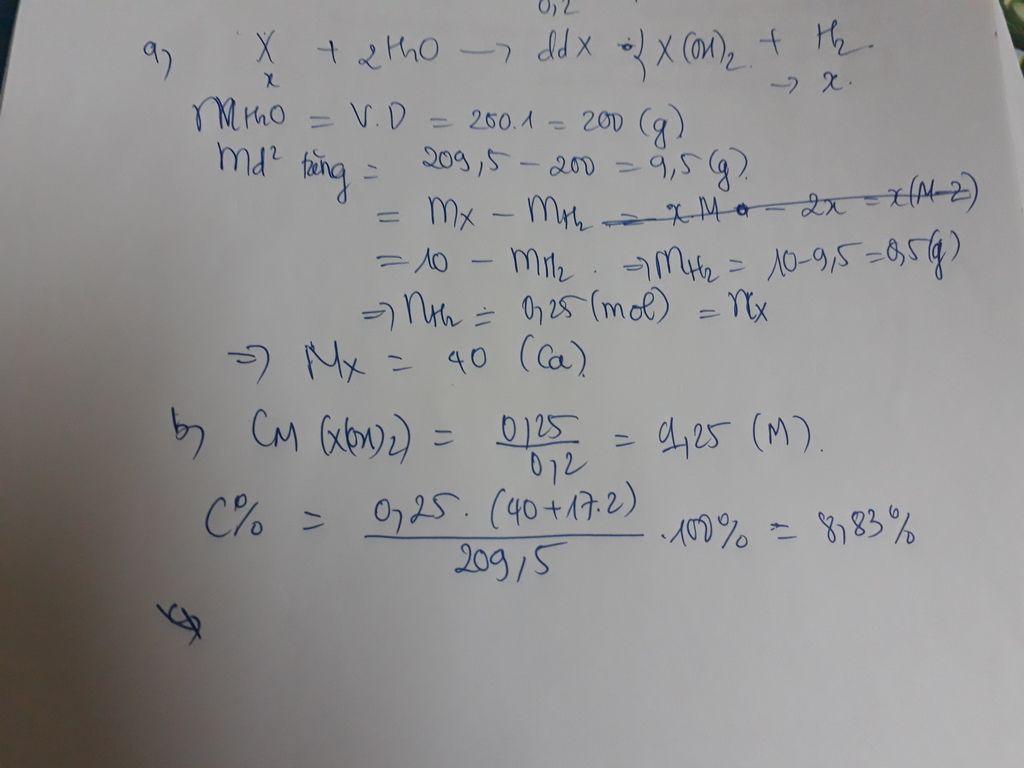 0,2
a, X + 2H2O → ddX { X(OH)2 + H2.
x → x.
mH2O = V.D = 200.1 = 200 (g)
md² tăng = 209,5 - 200 = 9,5 (g)
= mX - mH2 = xM - 2x = x(M-2)
= 10 - mH2. ⇒ mH2 = 10-9,5 = 0,5(g)
⇒ nH2 = 0,25 (mol) = nX
⇒ MX = 40 (Ca)
b, CM (X(OH)2) = 0,25 / 0,2 = 1,25 (M).
C% = 0,25. (40+17.2) / 209,5 .100% = 8,83%